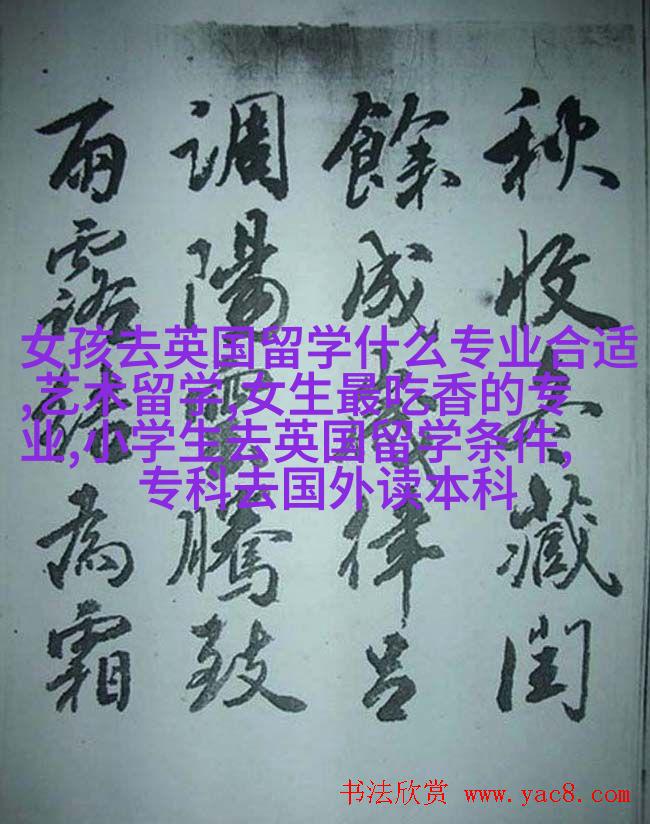 秋收冬藏閏
餘成歲律呂
調陽雲騰致
雨露結為霜
女孩去英国留学什么专业合适
,艺术留学,女生最吃香的专
业,小学生去英国留学条件,
专科去国外读本科
书法欣赏 www.yac8.com